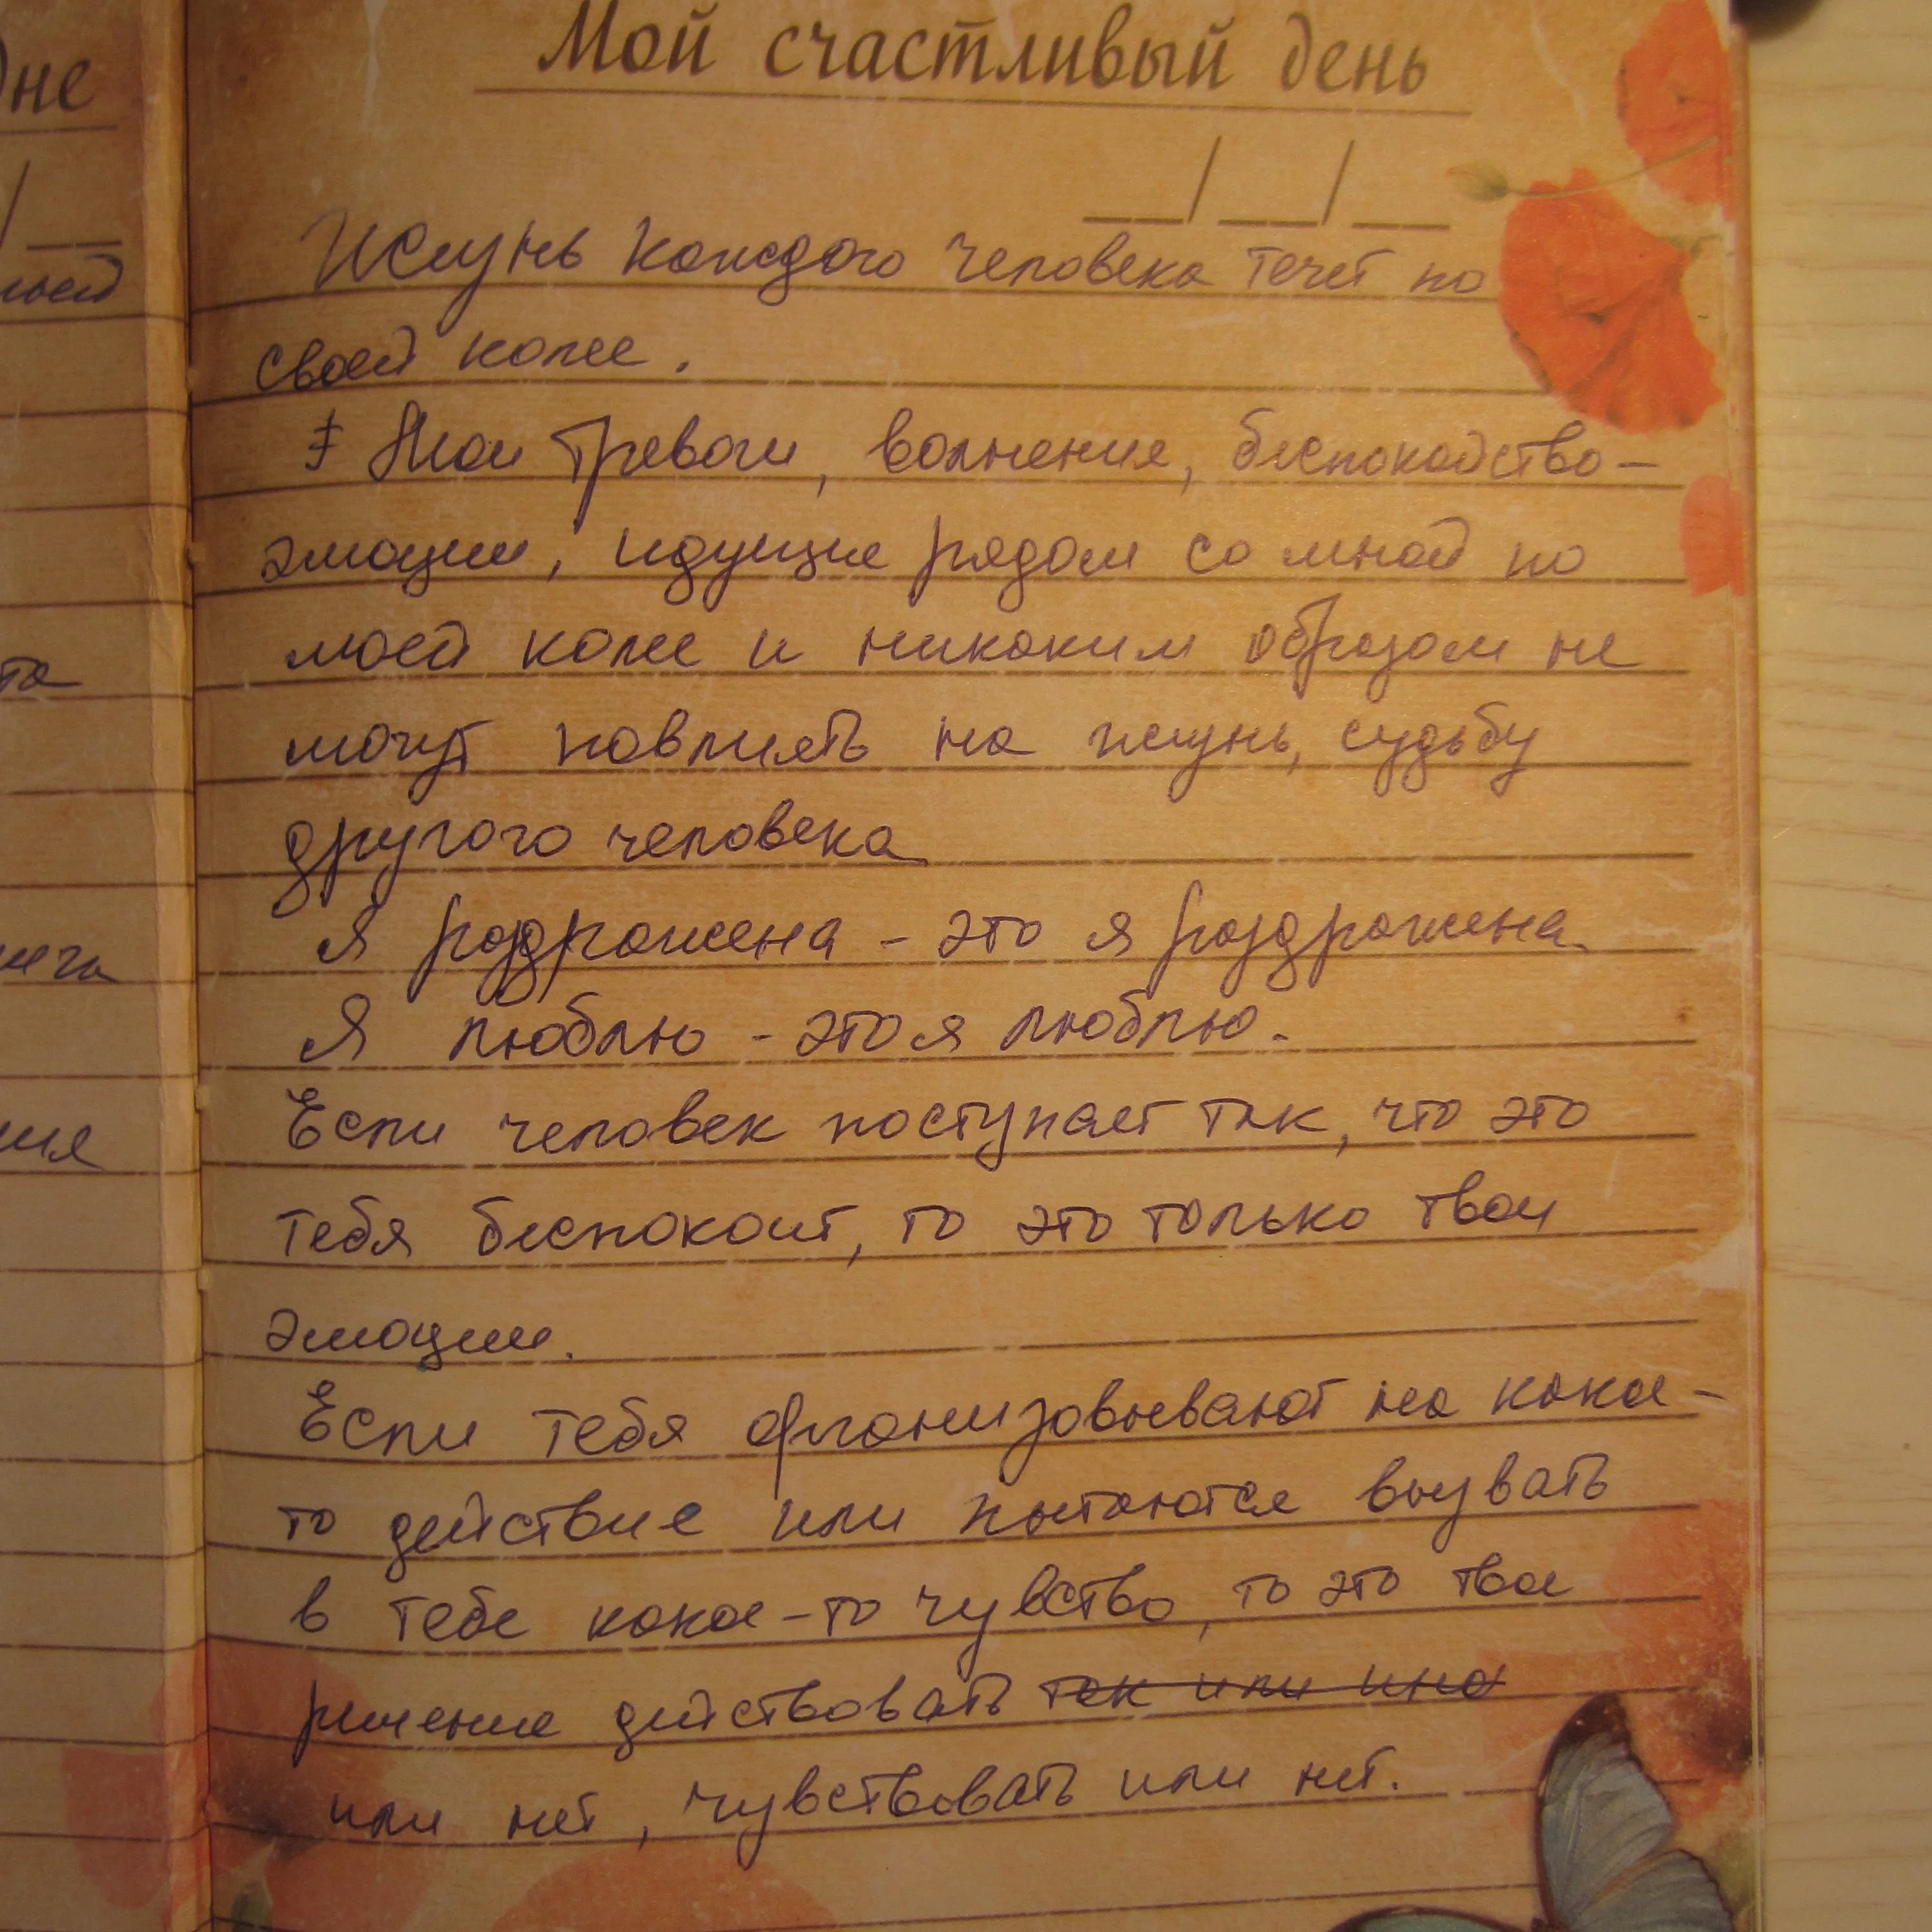 Мой счастливый день
__/__/__
Жизнь каждого человека течет по
своей колее.
Мои тревоги, волнения, беспокойство –
эмоции, идущие рядом со мной по
моей колее и никаким образом не
могут повлиять на жизнь, судьбу
другого человека
Я раздражена – это я раздражена.
Я люблю – это я люблю.
Если человек поступает так, что это
тебя беспокоит, то это только твои
эмоции.
Если тебя организовывают на какое-
то действие или пытаются вызвать
в тебе какое-то чувство, то это твое
решение действовать так или ина
или нет, чувствовать или нет.